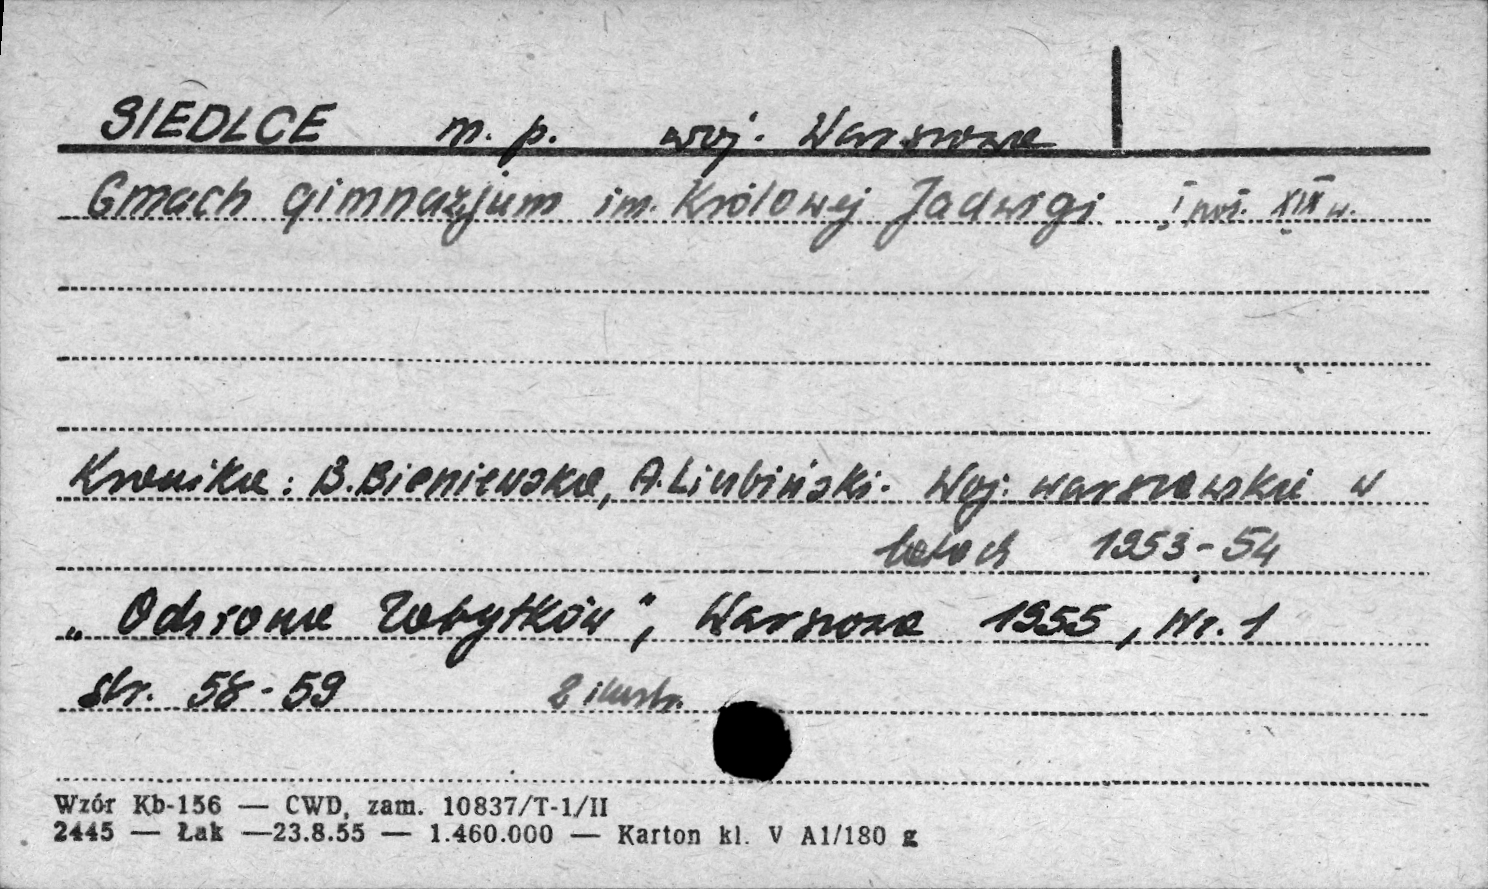 SIEDLCE m. p. woj. Warszawa
Gmach gimnazjum im. Królowej Jadwigi I poł. XIX w.
Kronika: B. Bieniewska, A. Liubiński. Woj. warszawskie w
latach 1953-54
„Ochrona Zabytków”, Warszawa 1955, Nr. 1
str. 58-59 2 ilustr.
Wzór Kb-156 — CWD, zam. 10837/T-1/II
2445 — Łak —23.8.55 — 1.460.000 — Karton kl. V A1/180 g